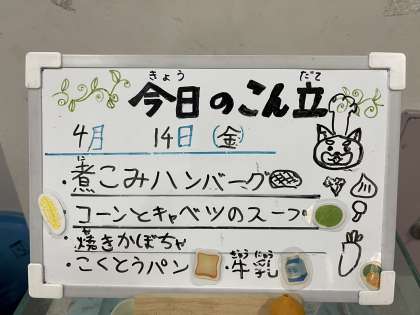 きょう だて
今日のこん立
4月 14日 (金)
に
・煮こみハンバーグ
・コーンとキャベツのスープ
や
・焼きかぼちゃ
ぎゅうにゅう
・こくとうパン ・牛乳